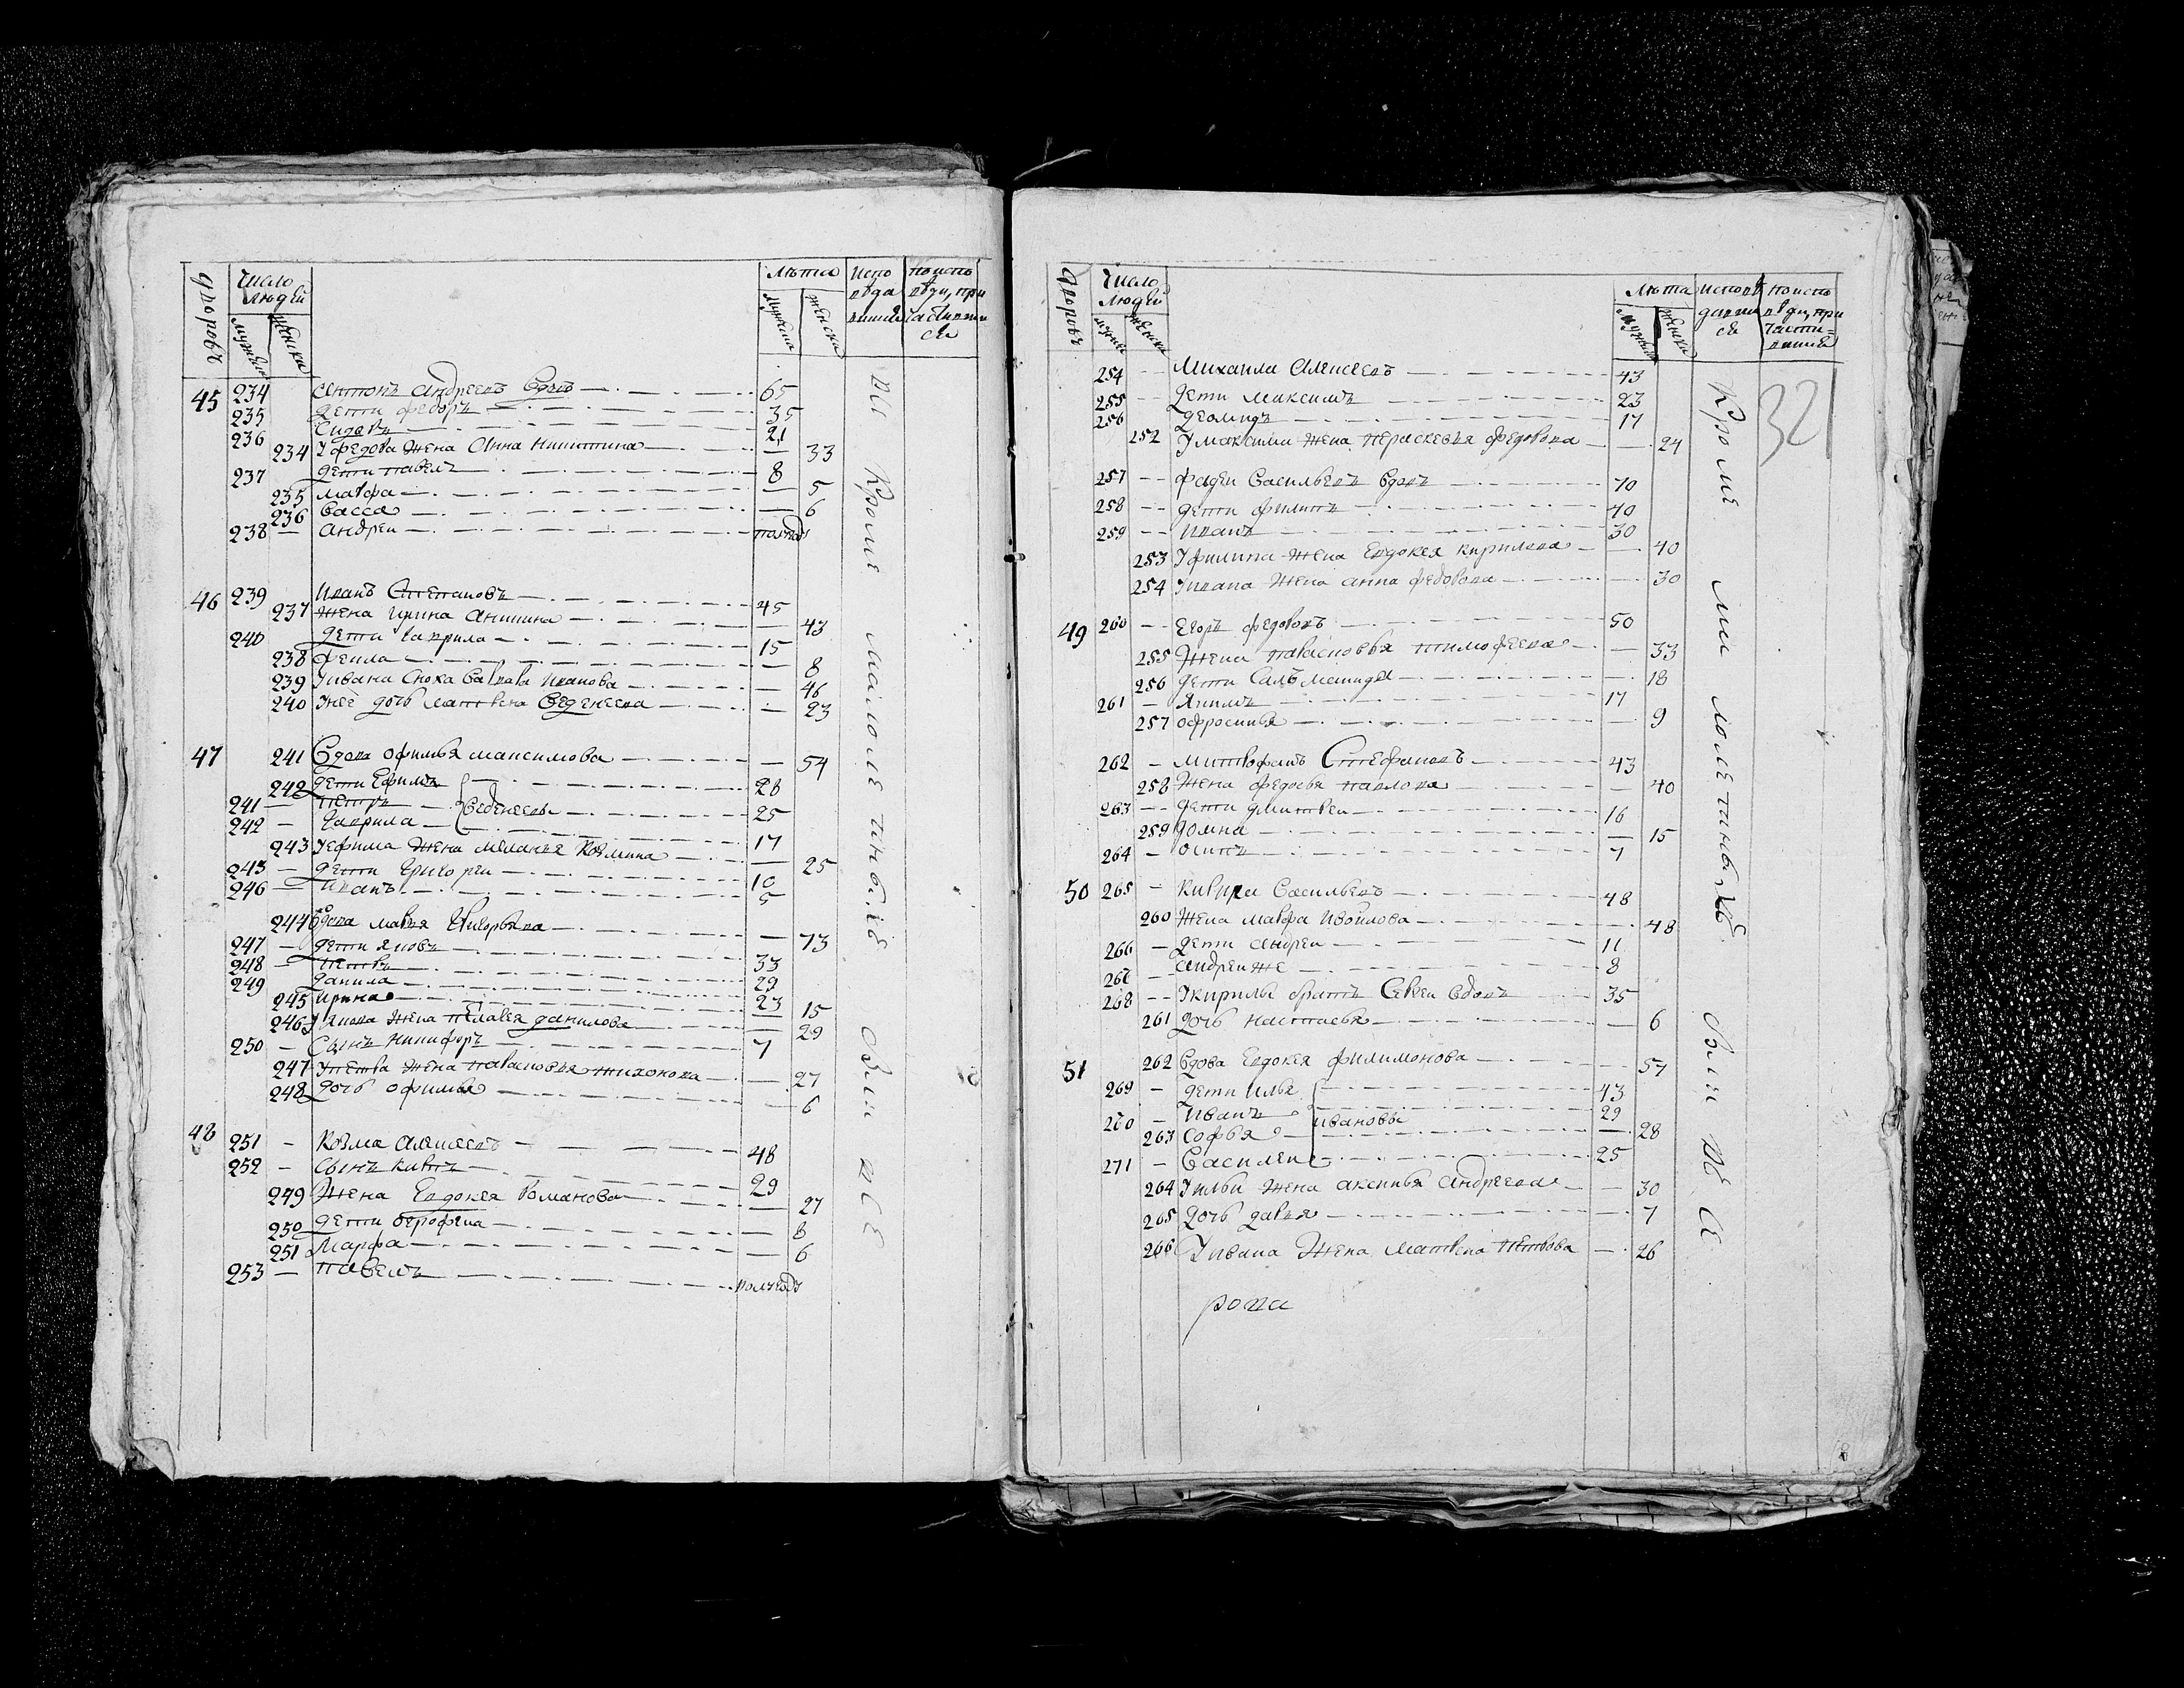 дворовъ
Число людей
мужеска
женска
Лѣта
мужеска
женска
45 234 Антонъ Андреевъ вдовъ 65
235 дети Федоръ 35
236 Сидоръ 21
234 У Федора жена Анна Никитина 33
237 дети Павелъ 8
235 Мавра 5
236 Васса 6
238 Андреи полгод
46 239 Иванъ Степановъ 45
237 Жена Ирина Аникина 43
240 дети Гаврила 15
238 Фекла 8
239 У Ивана сноха Варвара Иванова 46
240 У нее дочь Матрена 23
47 241 Вдова Офимья Максимова 54
242 дети Ефимъ 28
241 Петръ 25
242 Гаврила 17
243 У Ефима жена Меланья Козмина 25
245 дети Григореи 10
246 Иванъ 5
244 Вдова Марья Григорьева 73
247 дети Яковъ 33
248 Петръ 29
249 Данила 23
245 Ирина 15
246 У Якова жена Пелагея Данилова 29
250 Сынъ Никифоръ 7
247 У Петра жена Парасковья Тихонова 27
248 дочь Офимья 6
48 251 Козма Алексеевъ 48
252 Сынъ 29
249 Жена Евдокея Романова 27
250 дети 8
251 Марфа 6
253 Павелъ полъгодъ
кроме малолетных все
дворовъ
Число людей
мужеска
женска
Лѣта
мужеска
женска
32
254 Михаила Алексеевъ 43
255 дети Максимъ 23
256 Деомидъ 17
252 У Максима жена Пераскевья Федорова 24
257 Фадеи Васильевъ вдовъ 70
258 дети Филипъ 40
259 Иванъ 30
253 У Филипа жена Евдокея Кирилова 40
254 У Ивана жена Анна Федорова 30
49 260 Егоръ Федоровъ 50
255 Жена Парасковья Тимофеева 33
256 дети 18
261 Якимъ 17
257 Офросинья 9
262 Митрофанъ Стефановъ 43
258 Жена Федосья Павлова 40
263 дети Дмитреи 16
259 Домна 15
264 Осипъ 7
50 265 Кирила Васильевъ 48
260 Жена Мавра 48
266 дети Андреи 11
Андреи же 8
268 У Кирилы братъ Сергеи вдовъ 35
261 дочь Настасья 6
51 262 Вдова Евдокея Филимонова 57
269 дети Илья 43
Иванъ 29
Ивановы
263 Софья 28
271 Василеи 25
264 У Ильи жена Аксинья Андреева 30
265 дочь Дарья 7
266 У Ивана жена Матрена Петрова 26
Кроме малолетныхъ все